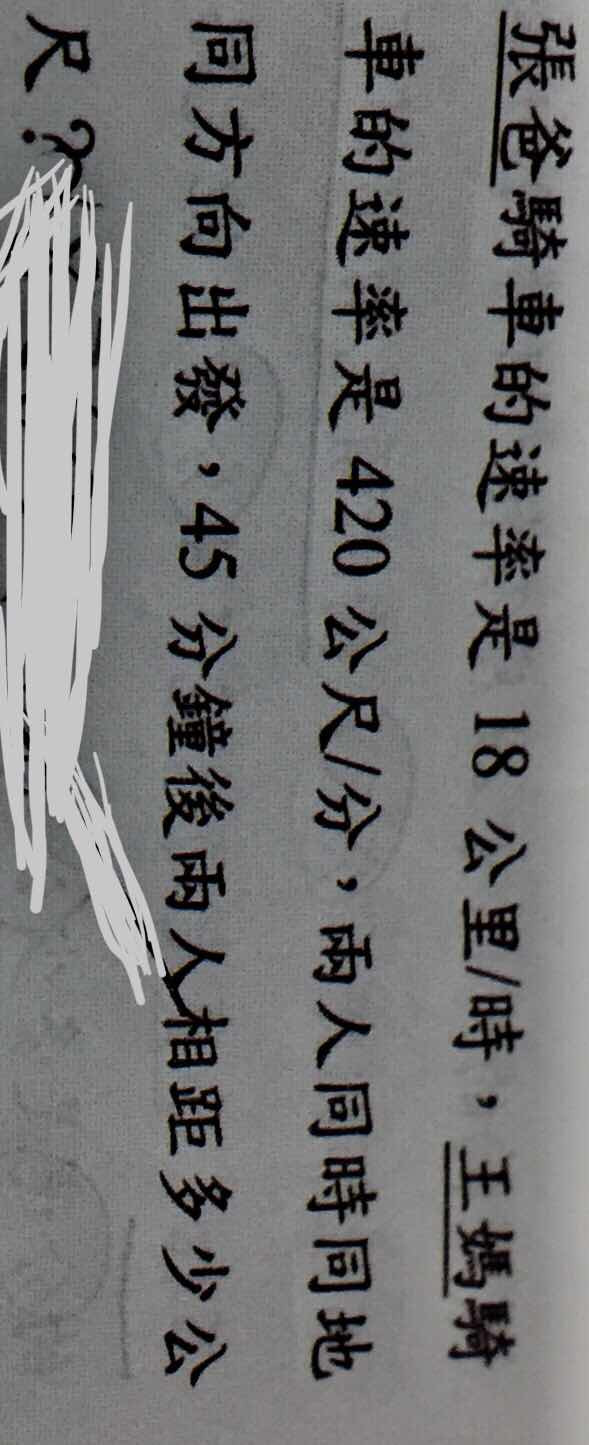 張爸騎車的速率是 18 公里/時，王媽騎
車的速率是 420 公尺/分，兩人同時同地
同方向出發，45 分鐘後兩人相距多少公
尺？